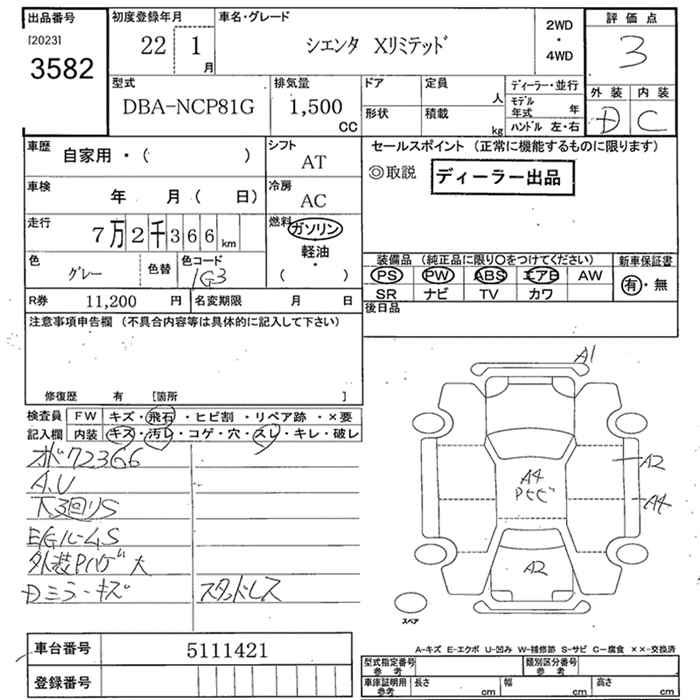 出品番号
[2023]
3582
初度登録年月
22 1
月
車名・グレード
シエンタ Xリミテッド
2WD
・
4WD
評価点
3
外装 内装
D C
型式
DBA-NCP81G
排気量
1,500
CC
ドア
形状
定員
人
積載
kg
ディーラー・並行
モデル
年式 年
ハンドル 左・右
車歴
自家用・( )
シフト
AT
車検
年 月( 日)
冷房
AC
走行
7万2千366km
燃料
ガソリン
軽油
・
( )
色
グレー
色替
色コード
1G3
R券 11,200 円
名変期限 月 日
セールスポイント (正常に機能するものに限ります)
◎取説
ディーラー出品
装備品 (純正品に限り○をつけてください)
PS PW ABS エアB AW
SR ナビ TV カワ
新車保証書
有・無
後日品
注意事項申告欄(不具合内容等は具体的に記入して下さい)
修復歴 有 [箇所 ]
検査員
記入欄
FW キズ・飛石・ヒビ割・リペア跡・×要
内装 キズ・汚レ・コゲ・穴・スレ・キレ・破レ
オド72366
A.U
下3回リS
E/GルームS
外装Pハゲ大
Dミラーキズ
スタッドレス
A1
A2
A4
A4
Pヒビ
A2
スペア
A-キズ E-エクボ U-凹み W-補修跡 S-サビ C-腐食 ××-交換済
車台番号 5111421
登録番号
型式指定番号
参考
類別区分番号
参考
車庫証明用
参考
長さ cm
幅 cm
高さ cm